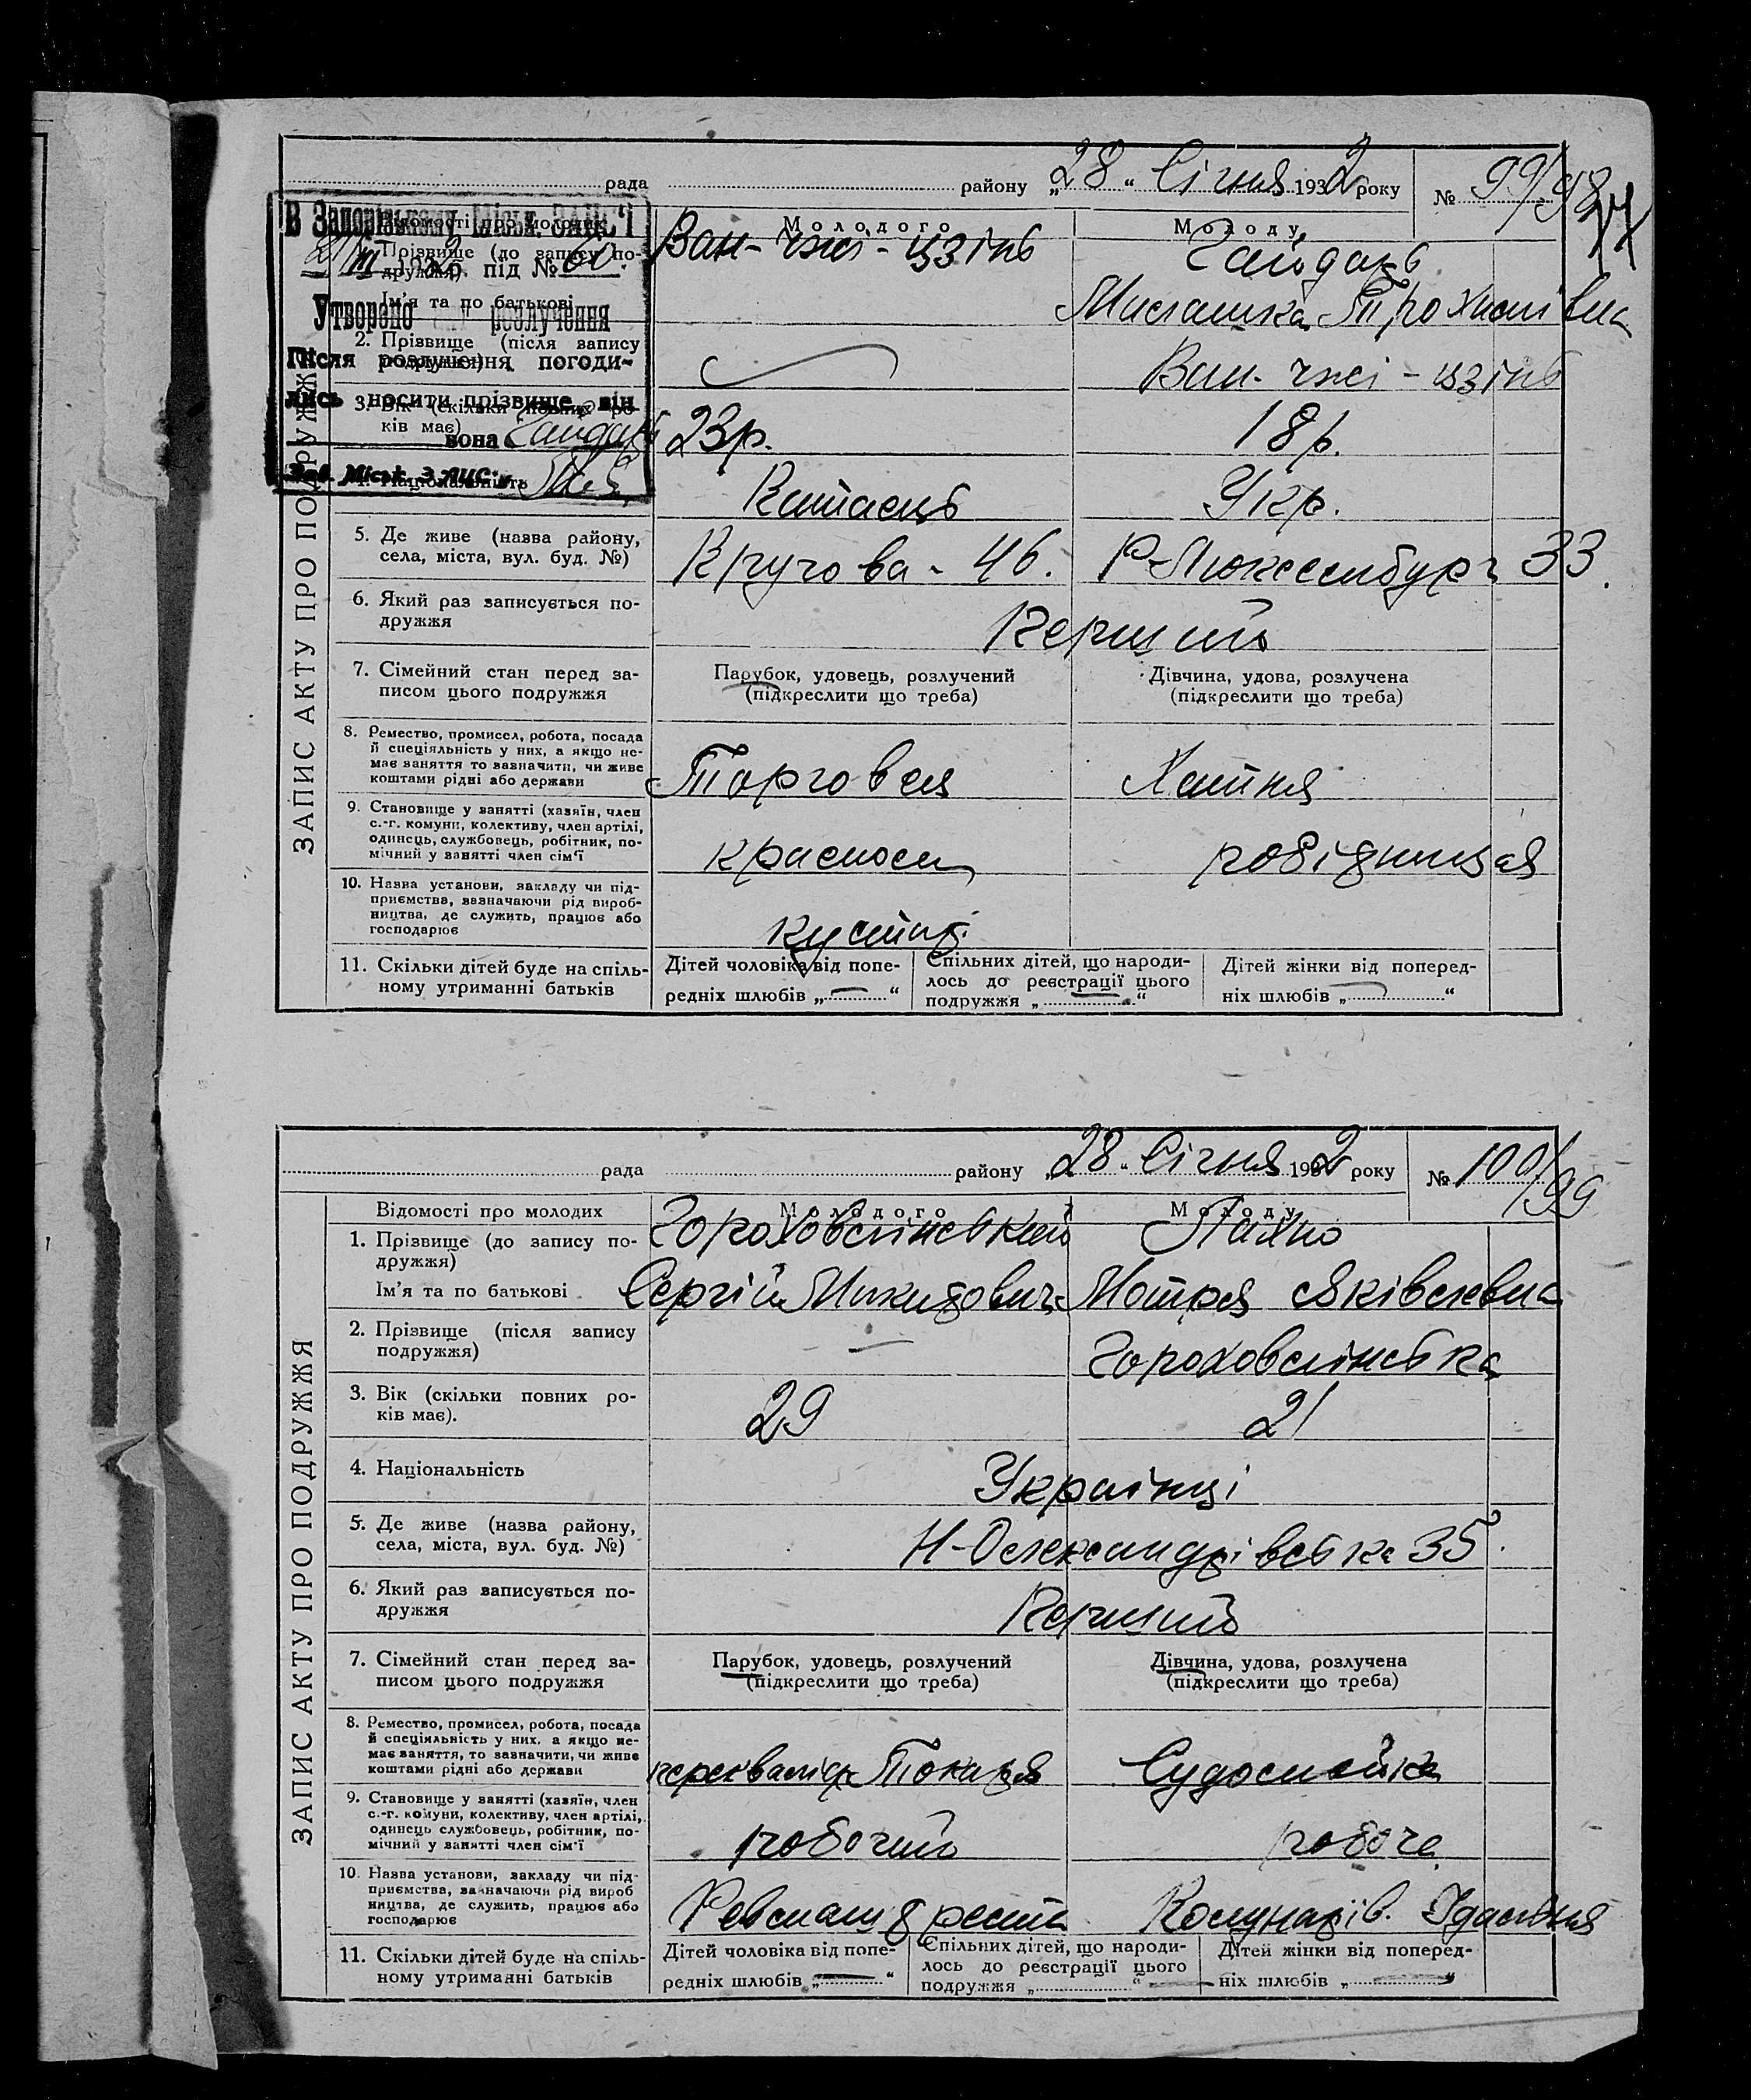 рада району „28“ Січня 1932 року № 99/98
Відомості про молодих Молодого Молоду
В Запорізькому Міськ. ЗАЦС'і
під №
Утворено розлучення
Після розлучення погоди-
лись носити прізвище він
вона Гайдарь
Зав. Міськ. ЗАЦС
Прізвище (до запису по-
дружжя) Ван-чжі-цзінь Гайдарь
Ім'я та по батькові Трохимівна
2. Прізвище (після запису
Ван-чжі-цзінь
3. Вік (скільки повних ро-
ків має) 23р. 18р.
4. Національність Китаець Укр.
5. Де живе (назва району,
села, міста, вул. буд. №) Кругова - 46. Р-Люксембург 33.
6. Який раз записується по-
дружжя Перший
7. Сімейний стан перед за-
писом цього подружжя
Парубок, удовець, розлучений
(підкреслити що треба)
Дівчина, удова, розлучена
(підкреслити що треба)
8. Ремество, промисел, робота, посада
й спеціяльність у них, а якщо не-
має заняття то зазначити, чи живе
коштами рідні або держави
Торговля Хатня
9. Становище у занятті (хазяїн, член
с.-г. комуни, колективу, член артілі,
одинець, службовець, робітник, по-
мічний у занятті член сім'ї
робідниця
10. Назва установи, закладу чи під-
приємства, зазначаючи рід вироб-
ництва, де служить, працює або
господарює
кустарь
11. Скільки дітей буде на спіль-
ному утриманні батьків
Дітей чоловіка від попе-
редніх шлюбів „—“
Спільних дітей, що народи-
лось до реєстрації цього
подружжя „—“
Дітей жінки від поперед-
ніх шлюбів „—“
ЗАПИС АКТУ ПРО ПОДРУЖЖЯ
рада району „28“ Січня 1932 року № 100/99
Відомості про молодих Молодого Молоду
1. Прізвище (до запису по-
дружжя) Гороховлінський Пахно
Ім'я та по батькові Сергій Микитович Мотря Яківлевна
2. Прізвище (після запису
подружжя) — Гороховлінська
3. Вік (скільки повних ро-
ків має). 29 21
4. Національність Українці
5. Де живе (назва району,
села, міста, вул. буд. №) Н-Олександрівська 35.
6. Який раз записується по-
дружжя Перший
7. Сімейний стан перед за-
писом цього подружжя
Парубок, удовець, розлучений
(підкреслити що треба)
Дівчина, удова, розлучена
(підкреслити що треба)
8. Ремество, промисел, робота, посада
й спеціяльність у них, а якщо не-
має заняття, то зазначити, чи живе
коштами рідні або держави
Токаря Судомойка
9. Становище у занятті (хазяїн, член
с.-г. комуни, колективу, член артілі,
одинець службовець, робітник, по-
мічний у занятті член сім'ї
робочий робоча
10. Назва установи, закладу чи під-
приємства, зазначаючи рід вироб
ництва, де служить, працює або
господарює
Комунарів. Їдальня
11. Скільки дітей буде на спіль-
ному утриманні батьків
Дітей чоловіка від попе-
редніх шлюбів „—“
Спільних дітей, що народи-
лось до реєстрації цього
подружжя „—“
Дітей жінки від поперед-
ніх шлюбів „—“
ЗАПИС АКТУ ПРО ПОДРУЖЖЯ